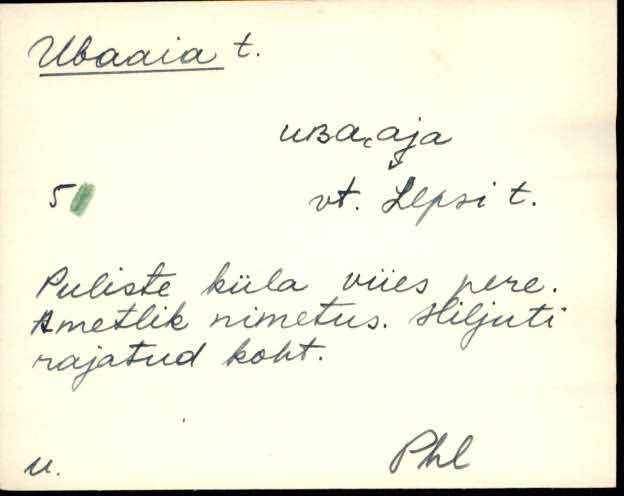 Ubaaia t.
uBa͔aja
5
vt. Lepsi t.
Puliste küla viies pere.
Ametlik nimetus. Hiljuti
rajatud koht.
u.
Phl